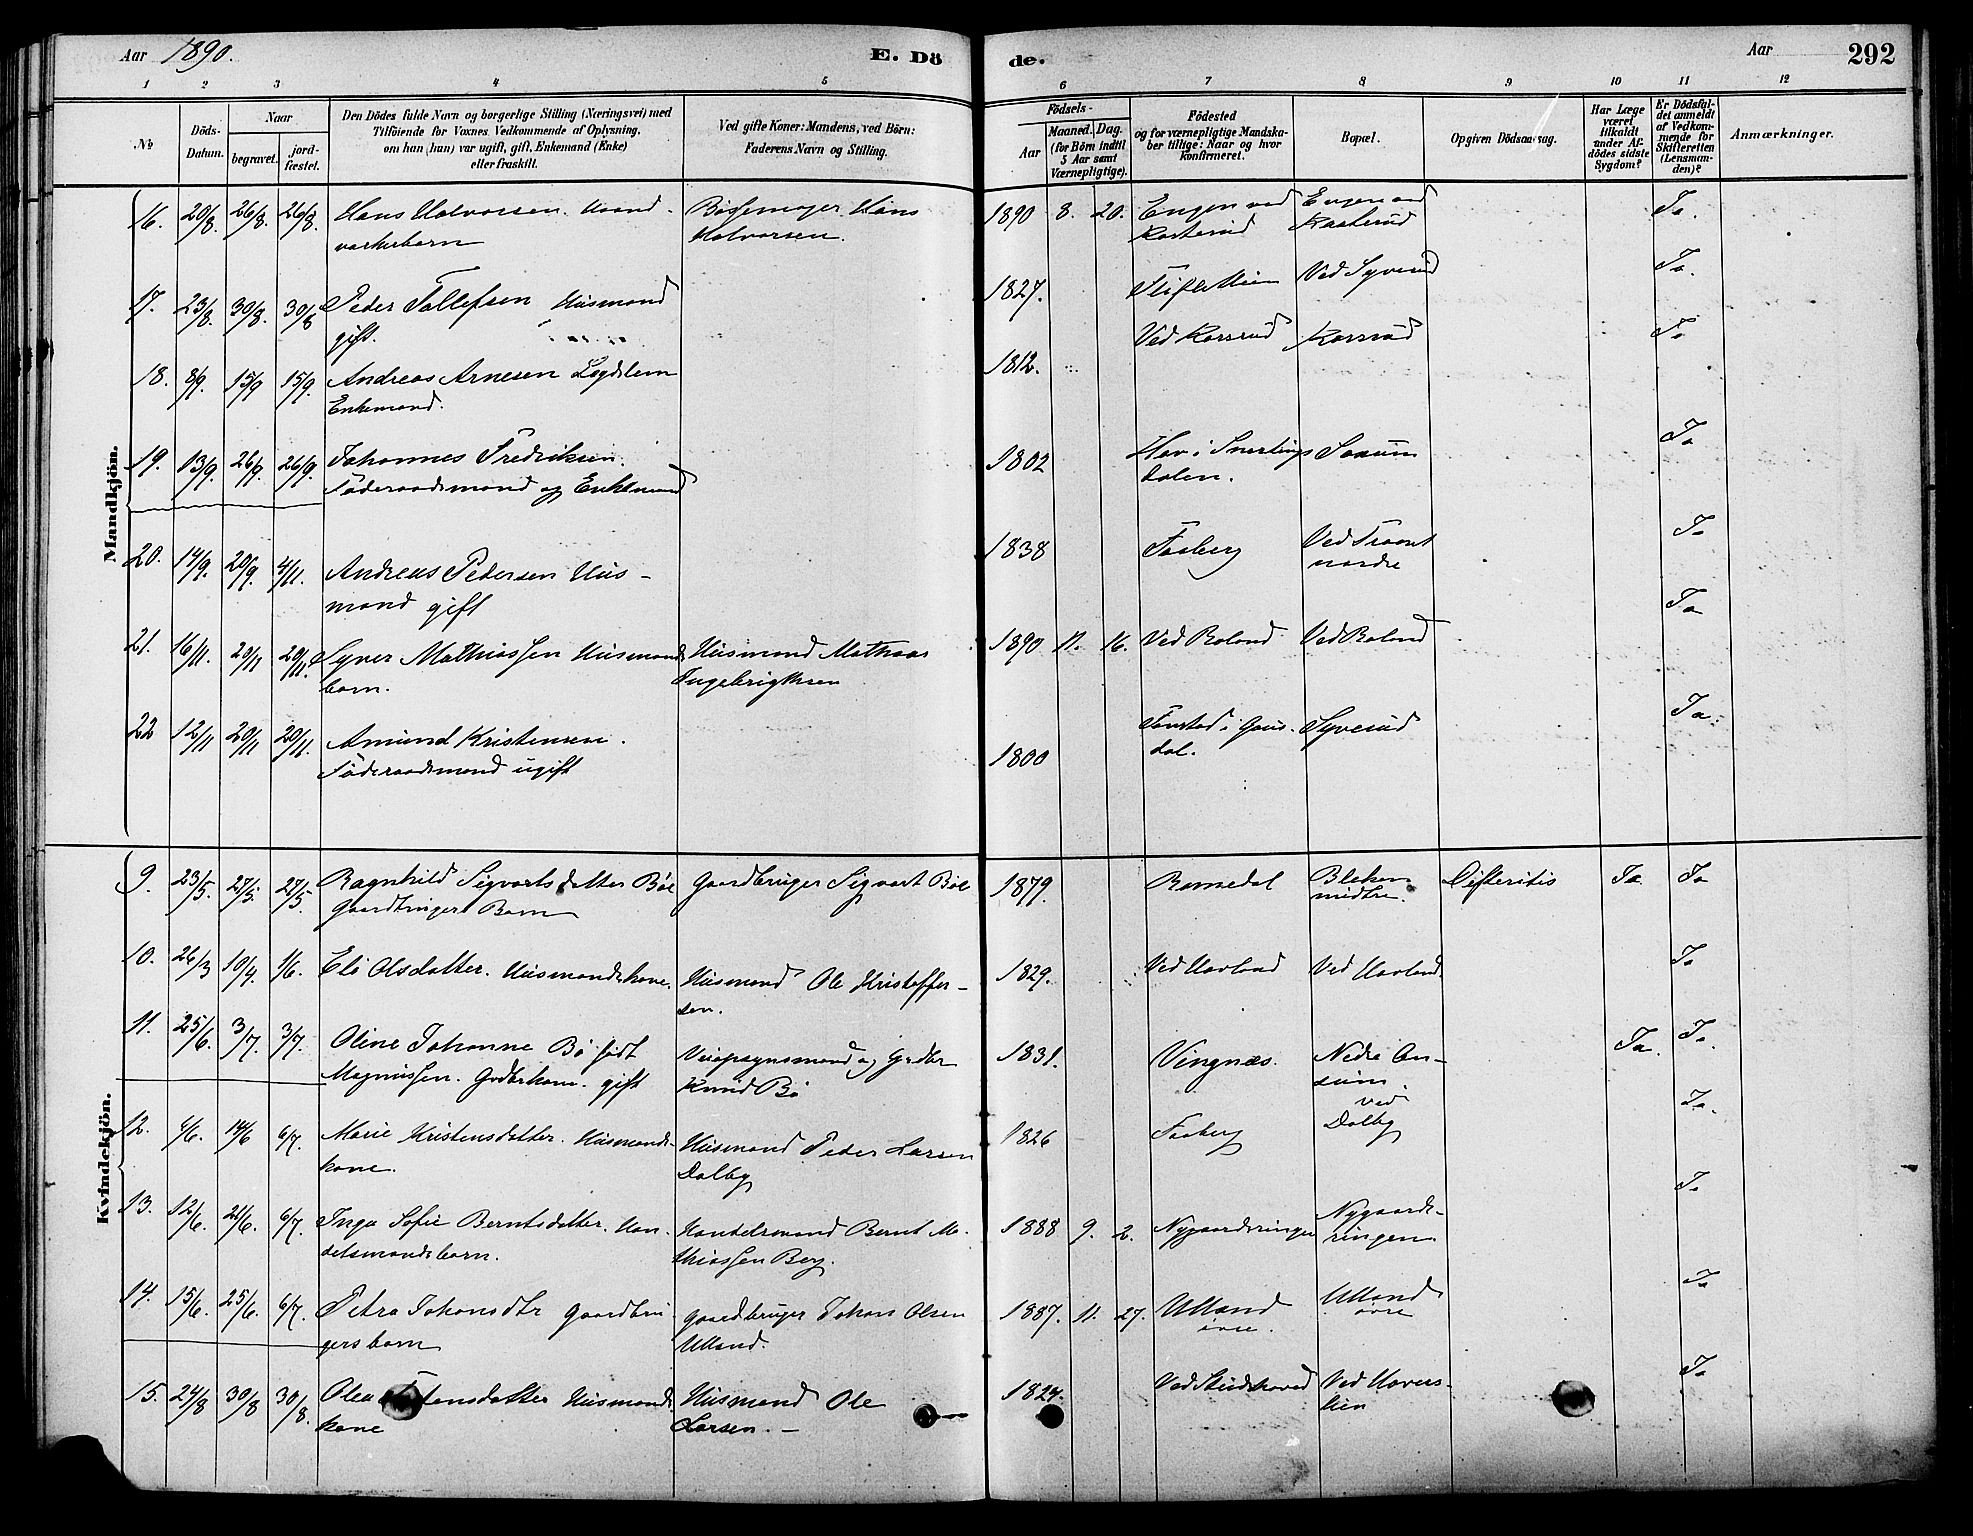 Aar 1890. E. Dö de. Aar 292
1 2 3 4 5 6 7 8 9 10 11 12
No
Döds-Datum.
Naar
begravet.
jordfæstet.
Den Dödes fulde Navn og borgerlige Stilling (Næringsvei) med
Tilföiende for Voxnes Vedkommende af Oplysning,
om han (hun) var ugift, gift, Enkemand (Enke)
eller fraskilt.
Ved gifte Koner: Mandens, ved Börn:
Faderens Navn og Stilling.
Födsels-
Aar
Maaned. Dag.
(for Börn indtil
5 Aar samt
Værnepligtige).
Födested
og for værnepligtige Mandskaber tillige: Naar og hvor
konfirmeret.
Bopæl.
Opgiven Dödsaarsag.
Har Læge
været
tilkaldt
under Afdödes sidste
Sygdom?
Er Dödsfaldet anmeldt
af Vedkommende for
Skifteretten
(Lensmanden)?
Anmærkninger.
Mandkjön.
16. 20/8. 26/8. 26/8. Hans Halvorsen. Haand- Bössemager Hans 1890 8. 20. Engen ved Engen ved Ja.
værkerbarn Halvorsen. Kasterud Kasterud
17. 23/8. 30/8. 30/8 Peder Tollefsen Husmand 1827. Ved Syverud Ja.
gift.
18. 8/9. 15/9 15/9. Andreas Arnesen Lægdslem 1812. Ved Korsrud Korsrud Ja
Enkemand.
19. 13/9. 26/9. 26/9. Johannes Fredriksen. 1802 Hov i Snertings Saxum Ja
Föderaadsmand og Enkemand dalen.
20. 14/9. 20/9. 4/11. Andreas Pedersen Hus- 1838 Faaberg Ved Traaset Ja
mand gift nordre
21. 16/11. 20/11 20/11. Syver Mathiassen Husmands Husmand Mathias 1890 11. 16. Ved Roland Ved Roland Ja
barn. Ingebrigtsen
22 12/11 20/11 20/11. Amund Kristensen. 1800 i Gaus- Syverud Ja.
Föderaadsmand ugift dal.
Kvindekjön.
9. 23/5. 27/5. 27/5. Ragnhild Sigvartsdatter Böe Gaardbruger Sigvart Böe 1879. Romedal Bleken Difteritis Ja. Ja
Gaardbrugers Barn midtre.
10. 26/3 10/4. 1/6. Eli Olsdatter. Husmandskone. Husmand Ole Kristoffer- 1829. Ved Ved Ja
sen.
11. 25/6. 3/7. 3/7. Oline Johanne Bö födt og Grdbr 1831. Vingnæs. Nedre Ja. Ja.
Magnussen. Grdbrkone. gift Knud Bö
12. 4/6. 14/6 6/7. Marie Kristensdatter. Husmands- Husmand Peder Larsen 1826 Faaberg ved Dalby Ja.
kone. Dalby
13. 12/6. 21/6. 6/7. Inga Sofie Berntsdatter. Han- Handelsmand Bernt Ma- 1888 9. 2. Nygaardsringen Nygaards- Ja
delsmandsbarn. thiassen Berg. ringen
14. 15/6. 25/6. 6/7. Petra Johansdtr Gaardbru Gaardbruger Johan Olsen 1887. 11. 27. Ulland Ulland Ja
gersbarn Ulland. övre. övre
15. 24/8 30/8 30/8. Olea Husmands Husmand Ole 1824. Ved Ved Ja
kone Larsen.